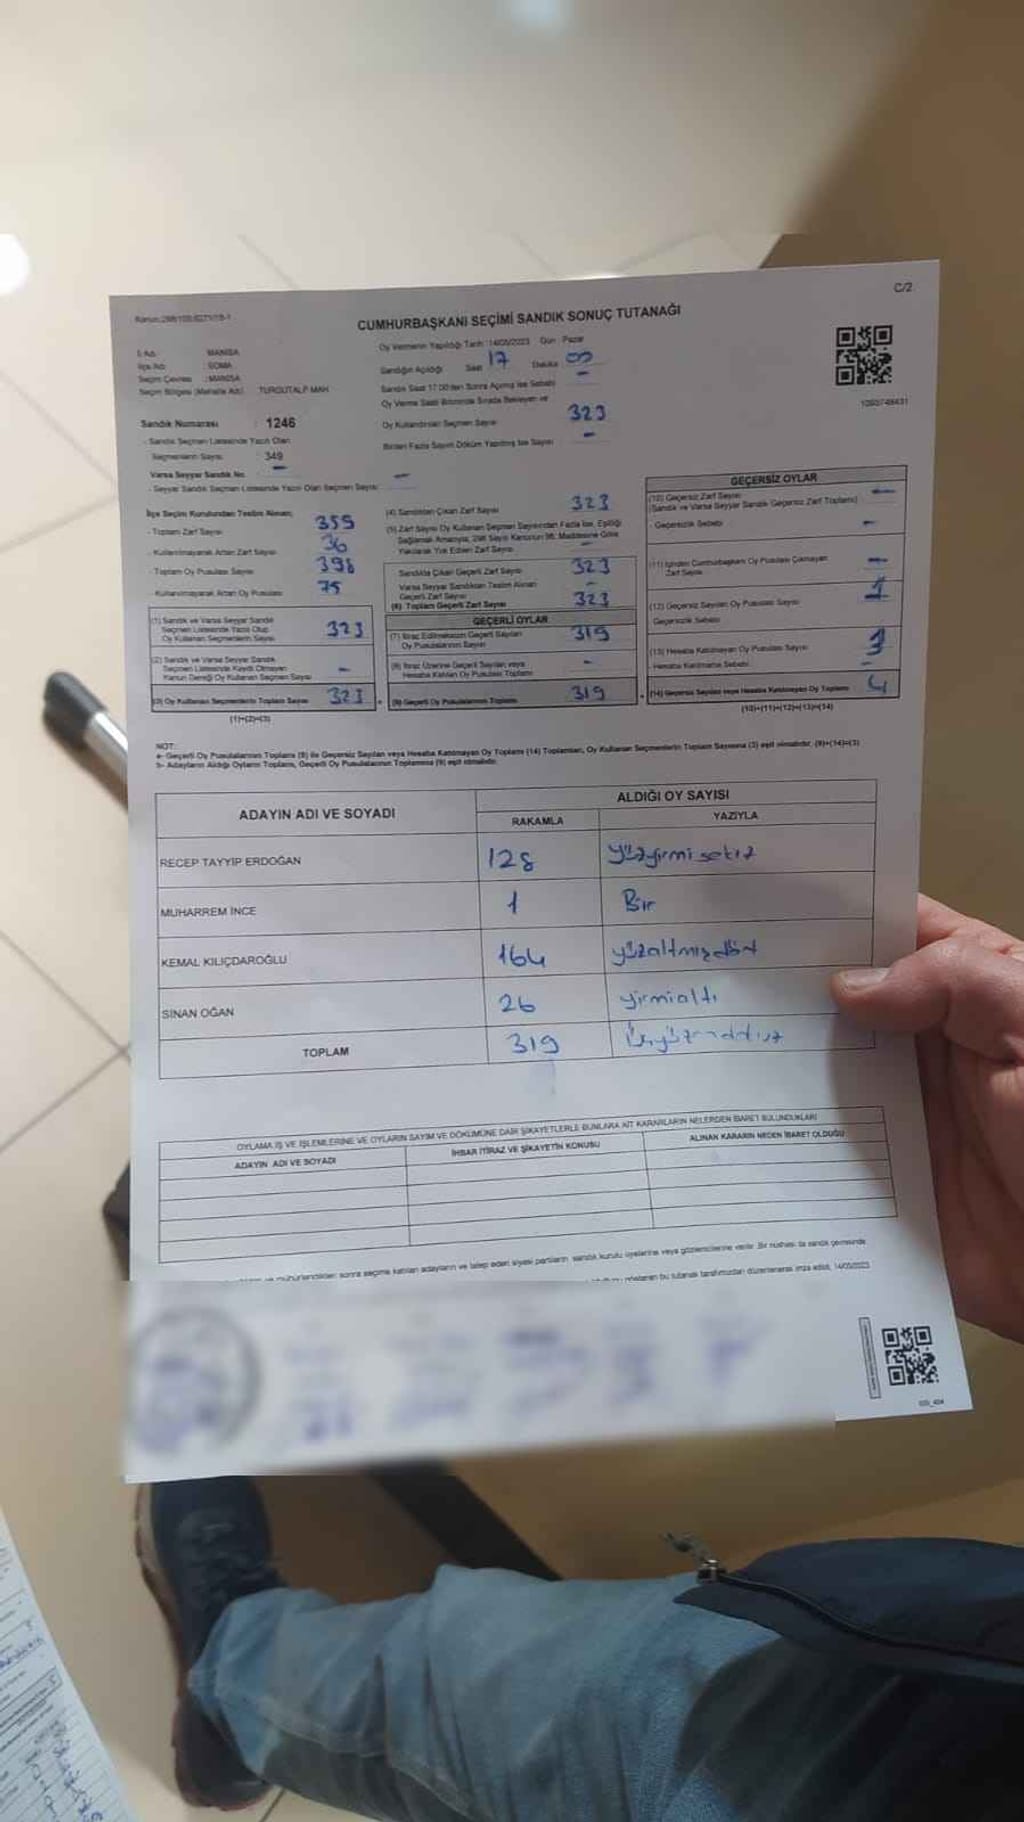 C/2
CUMHURBAŞKANI SEÇİMİ SANDIK SONUÇ TUTANAĞI
İl Adı : MANİSA
İlçe Adı : SOMA
Seçim Çevresi : MANİSA
Seçim Bölgesi (Mahalle Adı) : TURGUTALP MAH
Sandık Numarası : 1246
- Sandık Seçmen Listesinde Yazılı Olan
Seçmenlerin Sayısı : 349
Varsa Seyyar Sandık No : -
- Seyyar Sandık Seçmen Listesinde Yazılı Olan Seçmen Sayısı : -
Oy Vermenin Yapıldığı Tarih :14/05/2023 Gün : Pazar
Sandığın Açıldığı Saat 17 Dakika 00
Sandık Saat 17:00'den Sonra Açılmış İse Sebebi -
Oy Verme Saati Bitiminde Sırada Bekleyen ve
Oy Kullandırılan Seçmen Sayısı 323
Birden Fazla Sayım Döküm Yapılmış İse Sayısı -
İlçe Seçim Kurulundan Teslim Alınan;
- Toplam Zarf Sayısı 359
- Kullanılmayarak Artan Zarf Sayısı 36
- Toplam Oy Pusulası Sayısı 398
- Kullanılmayarak Artan Oy Pusulası 75
(1) Sandık ve Varsa Seyyar Sandık
Seçmen Listesinde Yazılı Olup
Oy Kullanan Seçmenlerin Sayısı 323
(2) Sandık ve Varsa Seyyar Sandık
Seçmen Listesinde Kaydı Olmayan
Kanun Gereği Oy Kullanan Seçmen Sayısı -
(3) Oy Kullanan Seçmenlerin Toplam Sayısı 323
(1)+(2)=(3)
(4) Sandıktan Çıkan Zarf Sayısı 323
(5) Zarf Sayısı Oy Kullanan Seçmen Sayısından Fazla İse, Eşitliği
Sağlamak Amacıyla, 298 Sayılı Kanunun 98. Maddesine Göre
Yakılarak Yok Edilen Zarf Sayısı -
Sandıkta Çıkan Geçerli Zarf Sayısı 323
Varsa Seyyar Sandıktan Teslim Alınan
Geçerli Zarf Sayısı -
(6) Toplam Geçerli Zarf Sayısı 323
GEÇERLİ OYLAR
(7) İtiraz Edilmeksizin Geçerli Sayılan
Oy Pusulalarının Sayısı 319
(8) İtiraz Üzerine Geçerli Sayılan veya
Hesaba Katılan Oy Pusulası Toplamı -
(9) Geçerli Oy Pusulalarının Toplamı 319
GEÇERSİZ OYLAR
(10) Geçersiz Zarf Sayısı
(Sandık ve Varsa Seyyar Sandık Geçersiz Zarf Toplamı) -
- Geçersizlik Sebebi -
(11) İçinden Cumhurbaşkanı Oy Pusulası Çıkmayan
Zarf Sayısı -
(12) Geçersiz Sayılan Oy Pusulası Sayısı 1
Geçersizlik Sebebi
(13) Hesaba Katılmayan Oy Pusulası Sayısı 3
- Hesaba Katılmama Sebebi -
(14) Geçersiz Sayılan veya Hesaba Katılmayan Oy Toplamı 4
(10)+(11)+(12)+(13)=(14)
NOT:
a- Geçerli Oy Pusulalarının Toplamı (9) ile Geçersiz Sayılan veya Hesaba Katılmayan Oy Toplamı (14) Toplamları, Oy Kullanan Seçmenlerin Toplam Sayısına (3) eşit olmalıdır. (9)+(14)=(3)
b- Adayların Aldığı Oyların Toplamı, Geçerli Oy Pusulalarının Toplamına (9) eşit olmalıdır.
ADAYIN ADI VE SOYADI
ALDIĞI OY SAYISI
RAKAMLA YAZIYLA
RECEP TAYYİP ERDOĞAN 128 yüzyirmisekiz
MUHARREM İNCE 1 Bir
KEMAL KILIÇDAROĞLU 164 yüzaltmışdört
SİNAN OĞAN 26 yirmialtı
TOPLAM 319
OYLAMA İŞ VE İŞLEMLERİNE VE OYLARIN SAYIM VE DÖKÜMÜNE DAİR ŞİKAYETLERLE BUNLARA AİT KARARLARIN NELERDEN İBARET BULUNDUKLARI
ADAYIN ADI VE SOYADI İHBAR İTİRAZ VE ŞİKAYETİN KONUSU ALINAN KARARIN NEDEN İBARET OLDUĞU
mühürlendikten sonra seçime katılan adayların ve talep eden siyasi partilerin sandık kurulu üyelerine veya gözlemcilerine verilir. Bir nüshası da sandık çevresinde
bu tutanak tarafımızdan düzenlenerek imza edildi. 14/05/2023